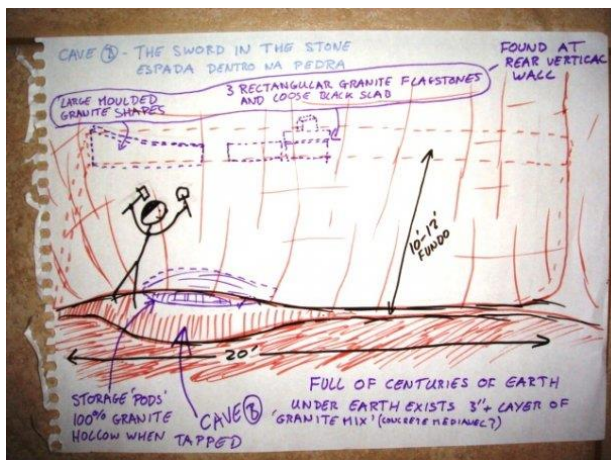 CAVE Ⓑ - THE SWORD IN THE STONE
ESPADA DENTRO NA PEDRA
FOUND AT
REAR VERTICAL
WALL
'LARGE MOULDED
GRANITE SHAPES
3 RECTANGULAR GRANITE FLAGSTONES
AND LOOSE BLACK SLAB
10'-12'
FUNDO
20'
STORAGE 'PODS'
100% GRANITE
HOLLOW WHEN
TAPPED
CAVE Ⓑ
FULL OF CENTURIES OF EARTH
UNDER EARTH EXISTS 3"+ LAYER OF
'GRANITE MIX' (CONCRETE MEDIAVEL?)